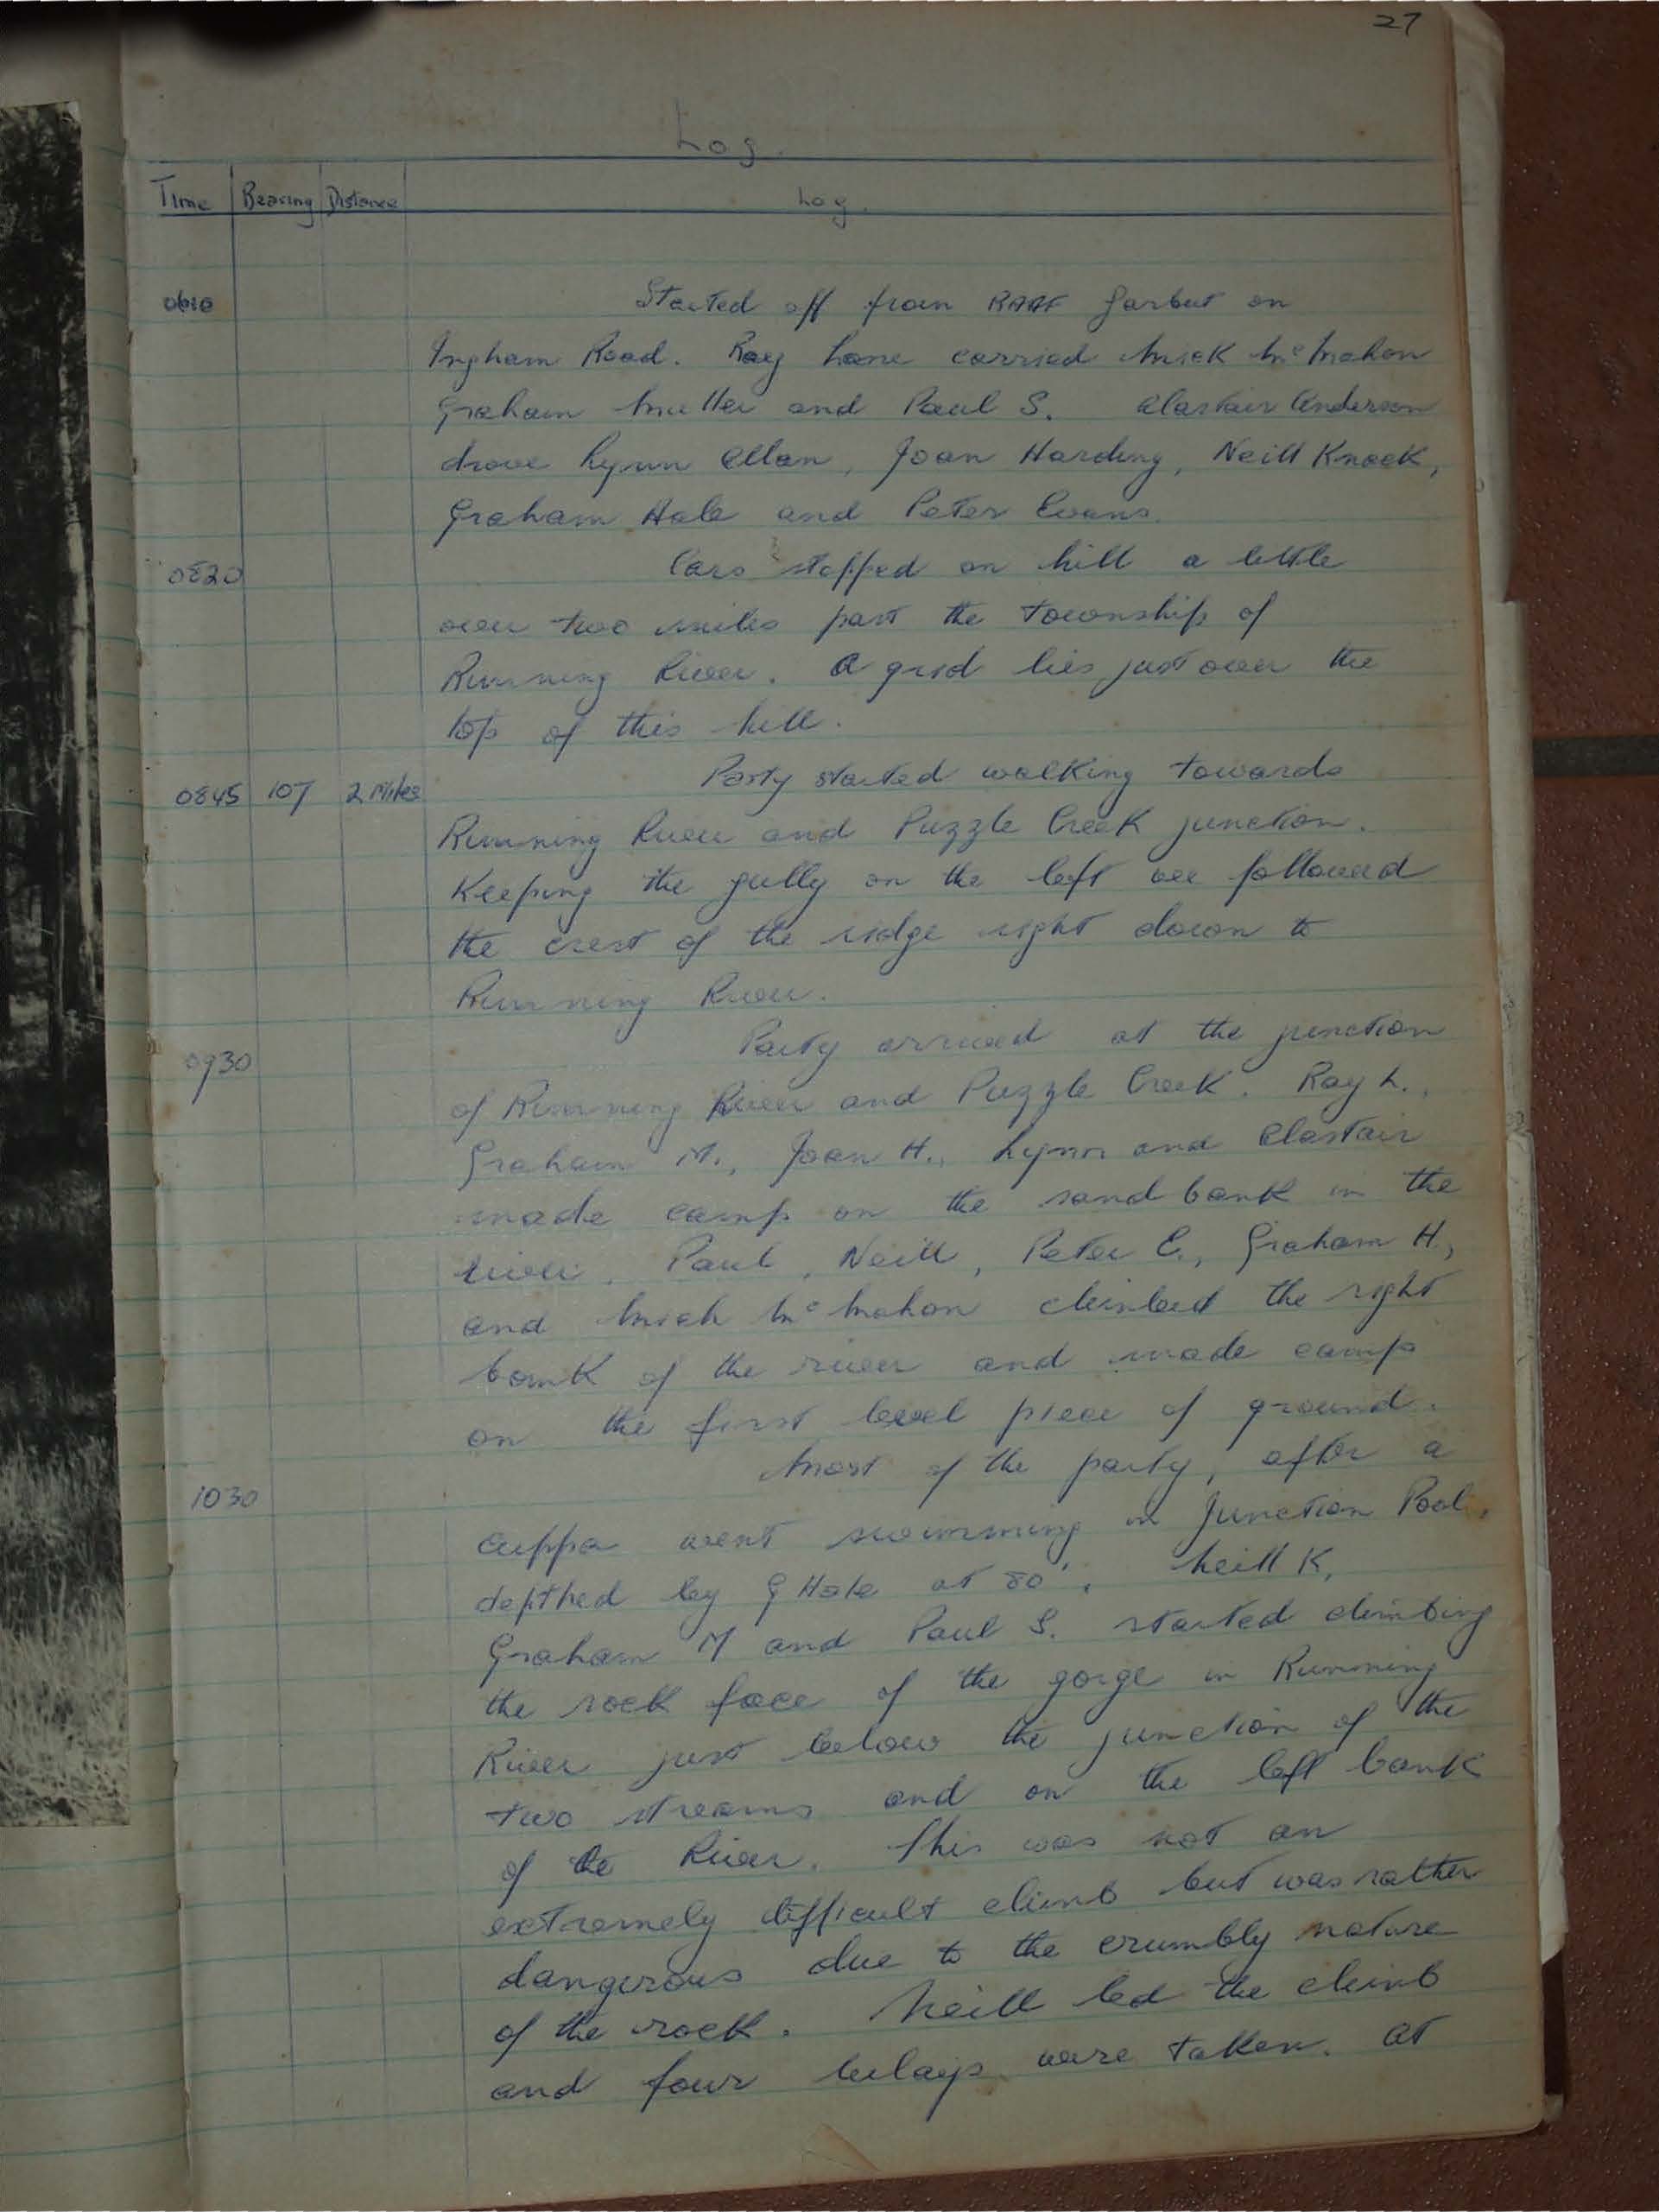 27
Log.
Time Bearing Distance Log.
0610 Started off from RAAF Garbut on
Ingham Road. Ray Lane carried Mick McMahon
Graham Muller and Paul S. Alastair Anderson
drove Lynn Allan, Joan Harding, Neill Knock,
Graham Hale and Peter Evans.
0820 Cars stopped on hill a little
over two miles past the township of
Running River. A grid lies just over the
top of this hill.
0845 107 2 Miles Party started walking towards
Running River and Puzzle Creek junction.
Keeping the gully on the left we followed
the crest of the ridge right down to
Running River.
0930 Party arrived at the junction
of Running River and Puzzle Creek. Ray L.,
Graham M., Joan H., Lynn and Alastair
made camp on the sand bank in the
river. Paul, Neill, Peter E., Graham H.,
and Mick McMahon climbed the right
bank of the river and made camp
on the first level piece of ground.
1030 Most of the party, after a
cuppa went swimming in Junction Pool,
depthed by G Hale at 80'. Neill K,
Graham M and Paul S. started climbing
the rock face of the gorge in Running
River just below the junction of the
two streams and on the left bank
of the River. This was not an
extremely difficult climb but was rather
dangerous due to the crumbly nature
of the rock. Neill led the climb
and four belays were taken. At